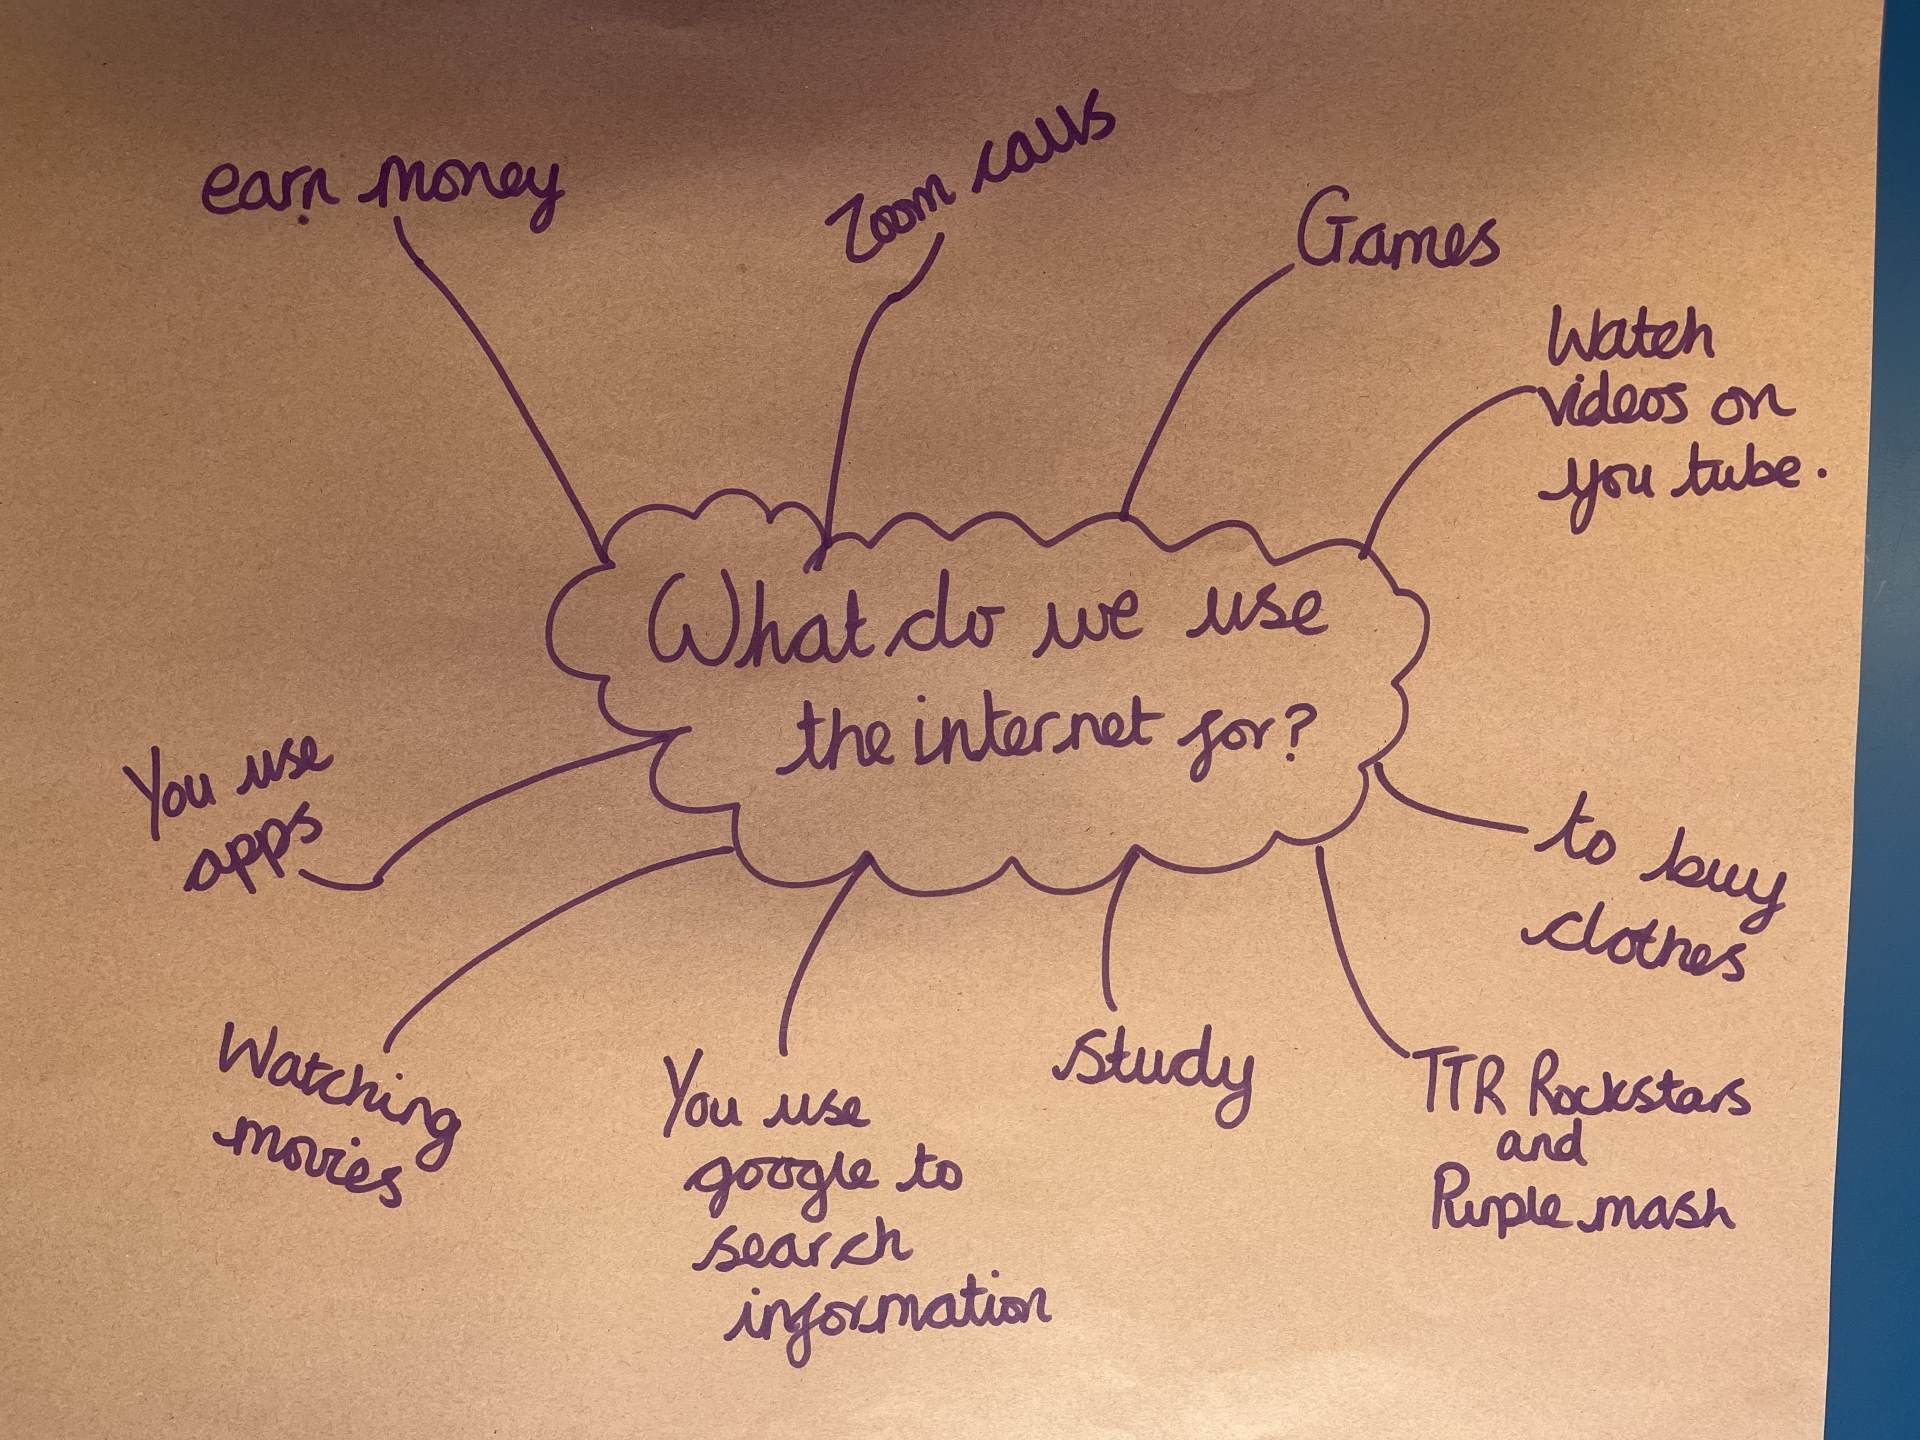 earn money
Zoom calls
Games
Watch
videos on
you tube.
What do we use
the internet for?
You use
apps
to buy
clothes
Watching
movies
You use
google to
search
information
Study
TTR Rockstars
and
Purple mash